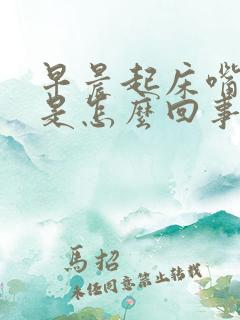 早晨起床嘴
是怎麼回事
馬招
未经同意禁止转载